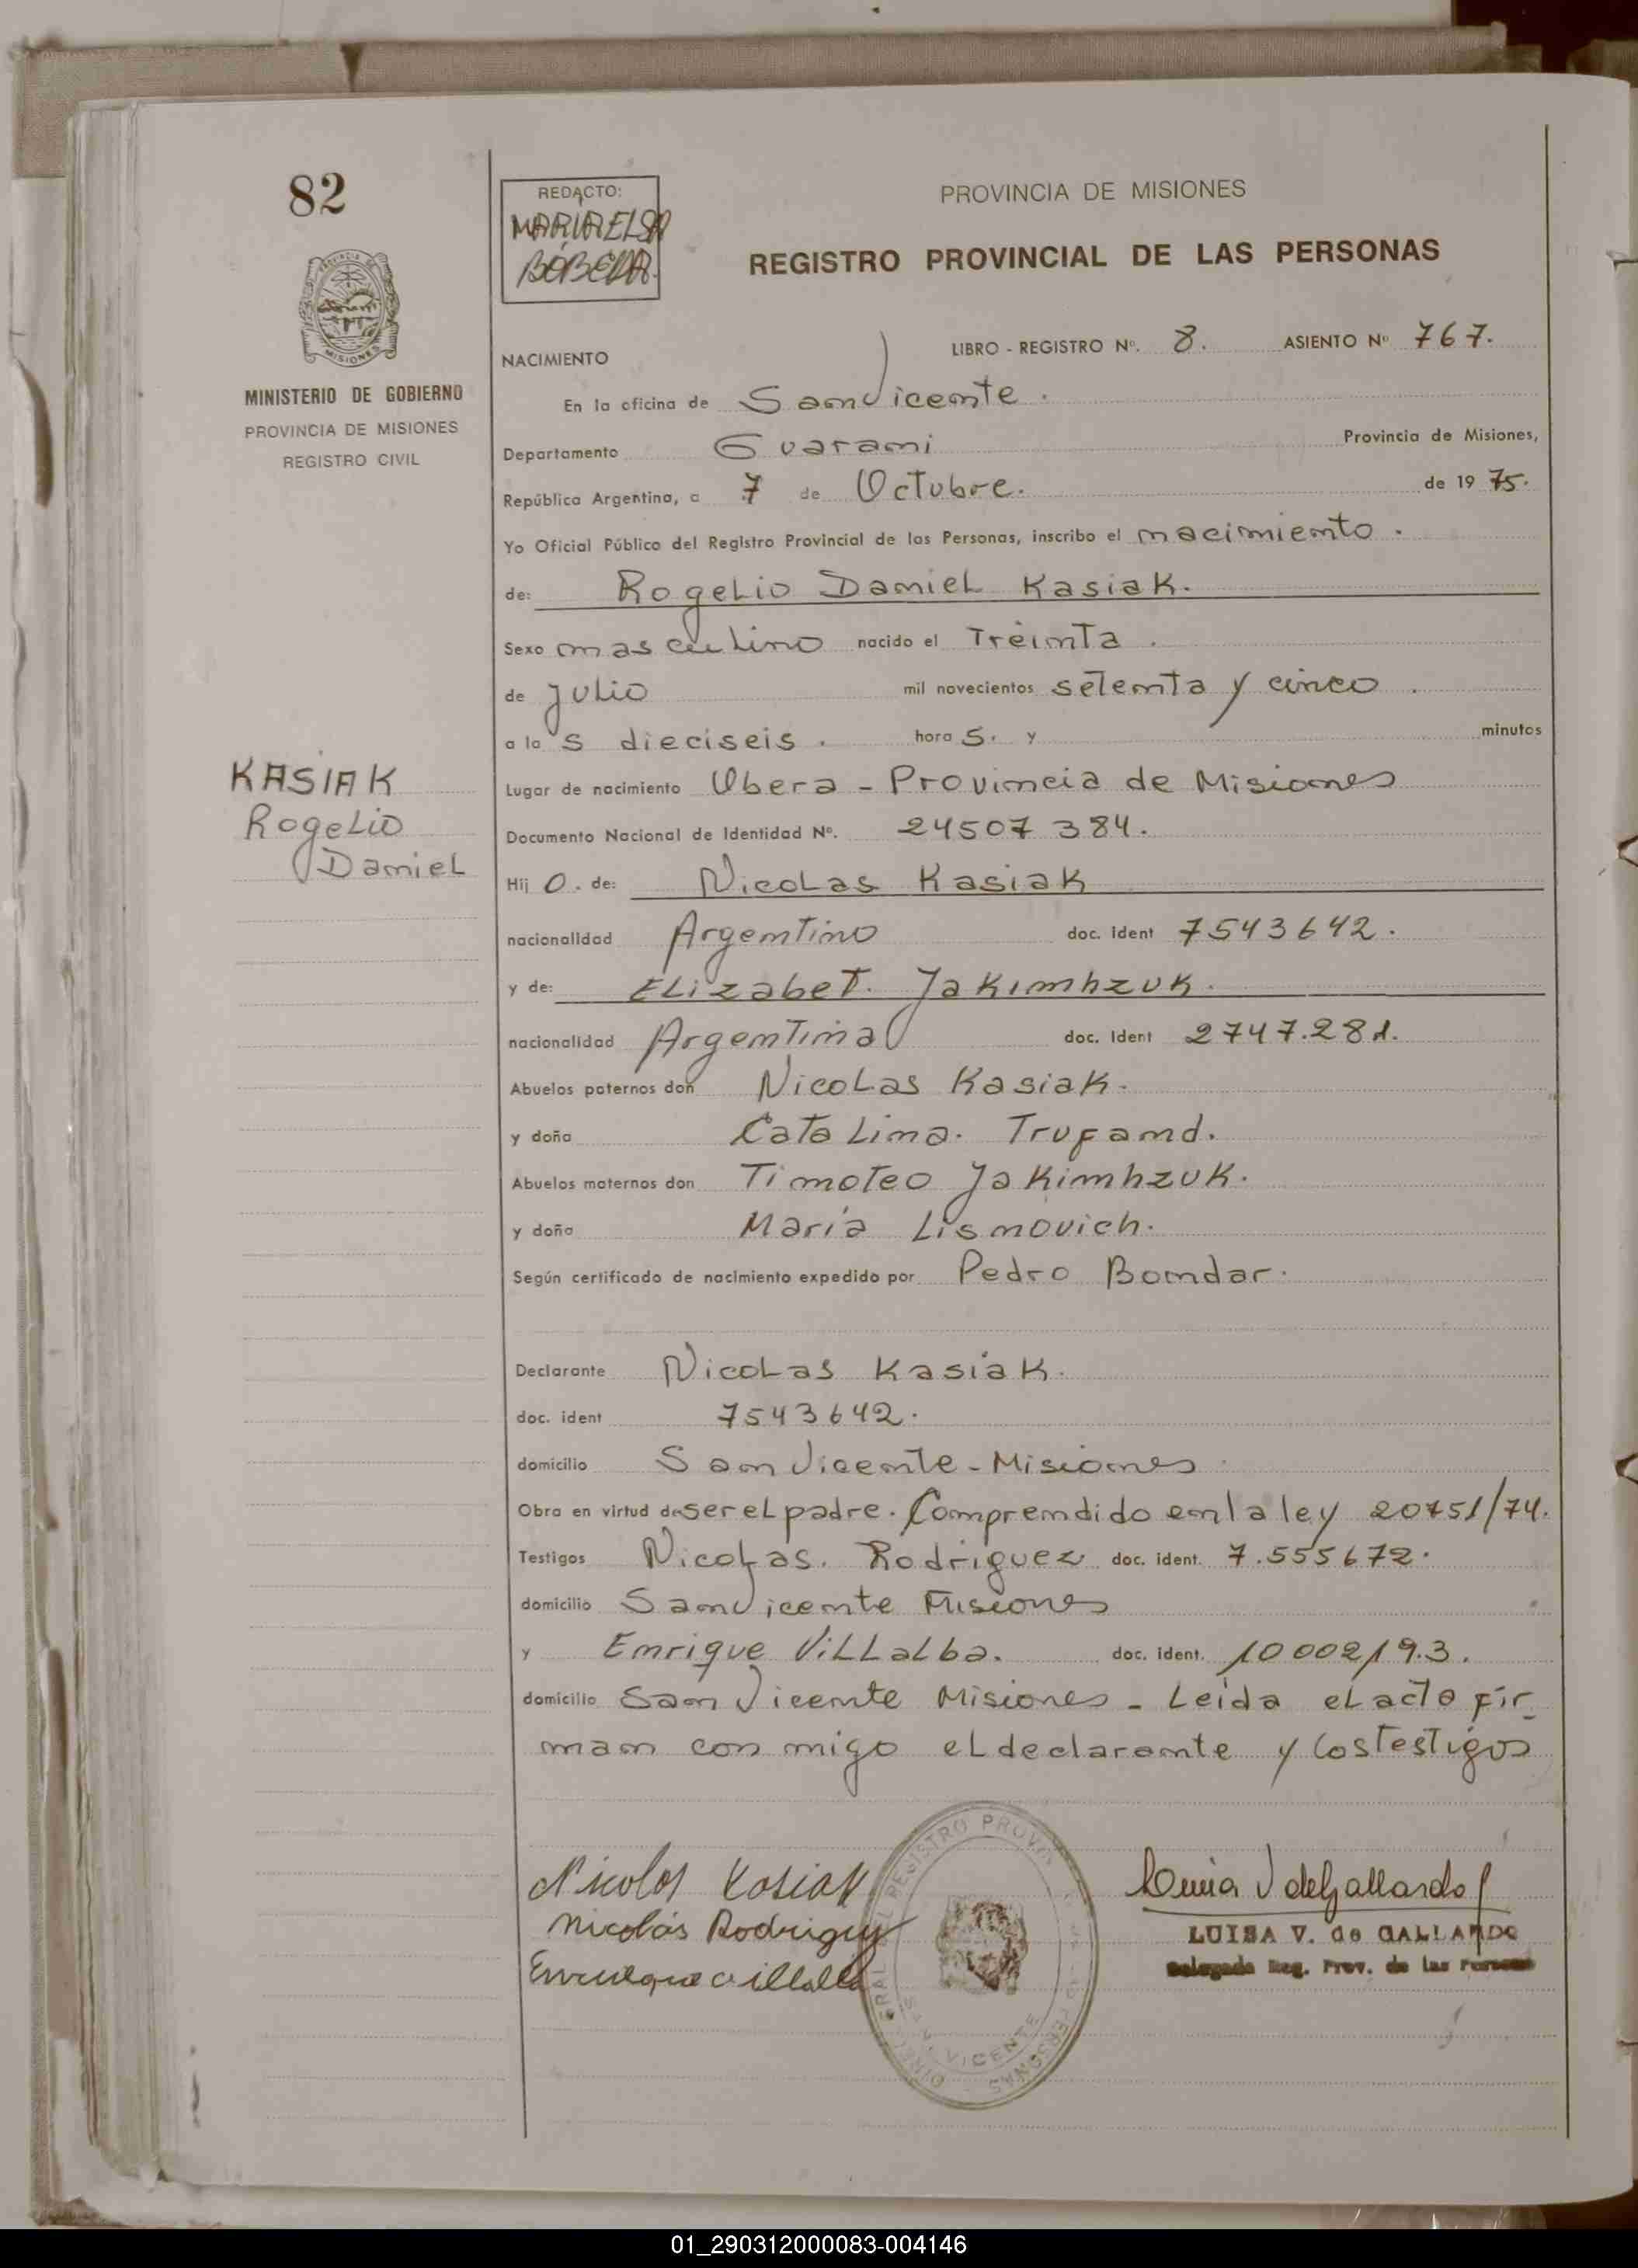 82
REDACTO:
MARIA ELSA
BÓBEDA.
PROVINCIA DE MISIONES
REGISTRO PROVINCIAL DE LAS PERSONAS
MISIONES
MINISTERIO DE GOBIERNO
PROVINCIA DE MISIONES
REGISTRO CIVIL
LIBRO - REGISTRO Nº. 8. ASIENTO Nº 767.
NACIMIENTO
En la oficina de San Vicente.
Departamento Guarani Provincia de Misiones,
República Argentina, a 7 de Octubre. de 1975.
Yo Oficial Público del Registro Provincial de las Personas, inscribo el nacimiento.
de: Rogelio Daniel Kasiak.
Sexo masculino nacido el Treinta.
de Julio mil novecientos setenta y cinco.
a las dieciseis. hora s. y minutos
KASIAK
Rogelio
Daniel
Lugar de nacimiento Obera - Provincia de Misiones
Documento Nacional de Identidad Nº. 24507384.
Hij o. de: Nicolas Kasiak
nacionalidad Argentino doc. ident 7543642.
y de: Elizabet. Jakimhzuk.
nacionalidad Argentina doc. ident 2747.281.
Abuelos paternos don Nicolas Kasiak.
y doña Catalina. Trufand.
Abuelos maternos don Timoteo Jakimhzuk.
y doña María Lisnovich.
Según certificado de nacimiento expedido por Pedro Bondar.
Declarante Nicolas Kasiak.
doc. ident 7543642.
domicilio San Vicente - Misiones.
Obra en virtud de ser el padre. Comprendido en la ley 20751/74.
Testigos Nicolas. Rodriguez doc. ident. 7.555672.
domicilio San Vicente Misiones
y Enrique Villalba. doc. ident. 10002193.
domicilio San Vicente Misiones - Leída el acta fir
man con migo el declarante y los testigos
Nicolas Kasiak
Nicolás Rodriguez
Enrique Villalba
REGISTRO PROV
PERSONAS
SAN VICENTE
Luisa V de Gallardo
LUISA V. de GALLARDO
Delegada Reg. Prov. de las Personas
01_290312000083-004146